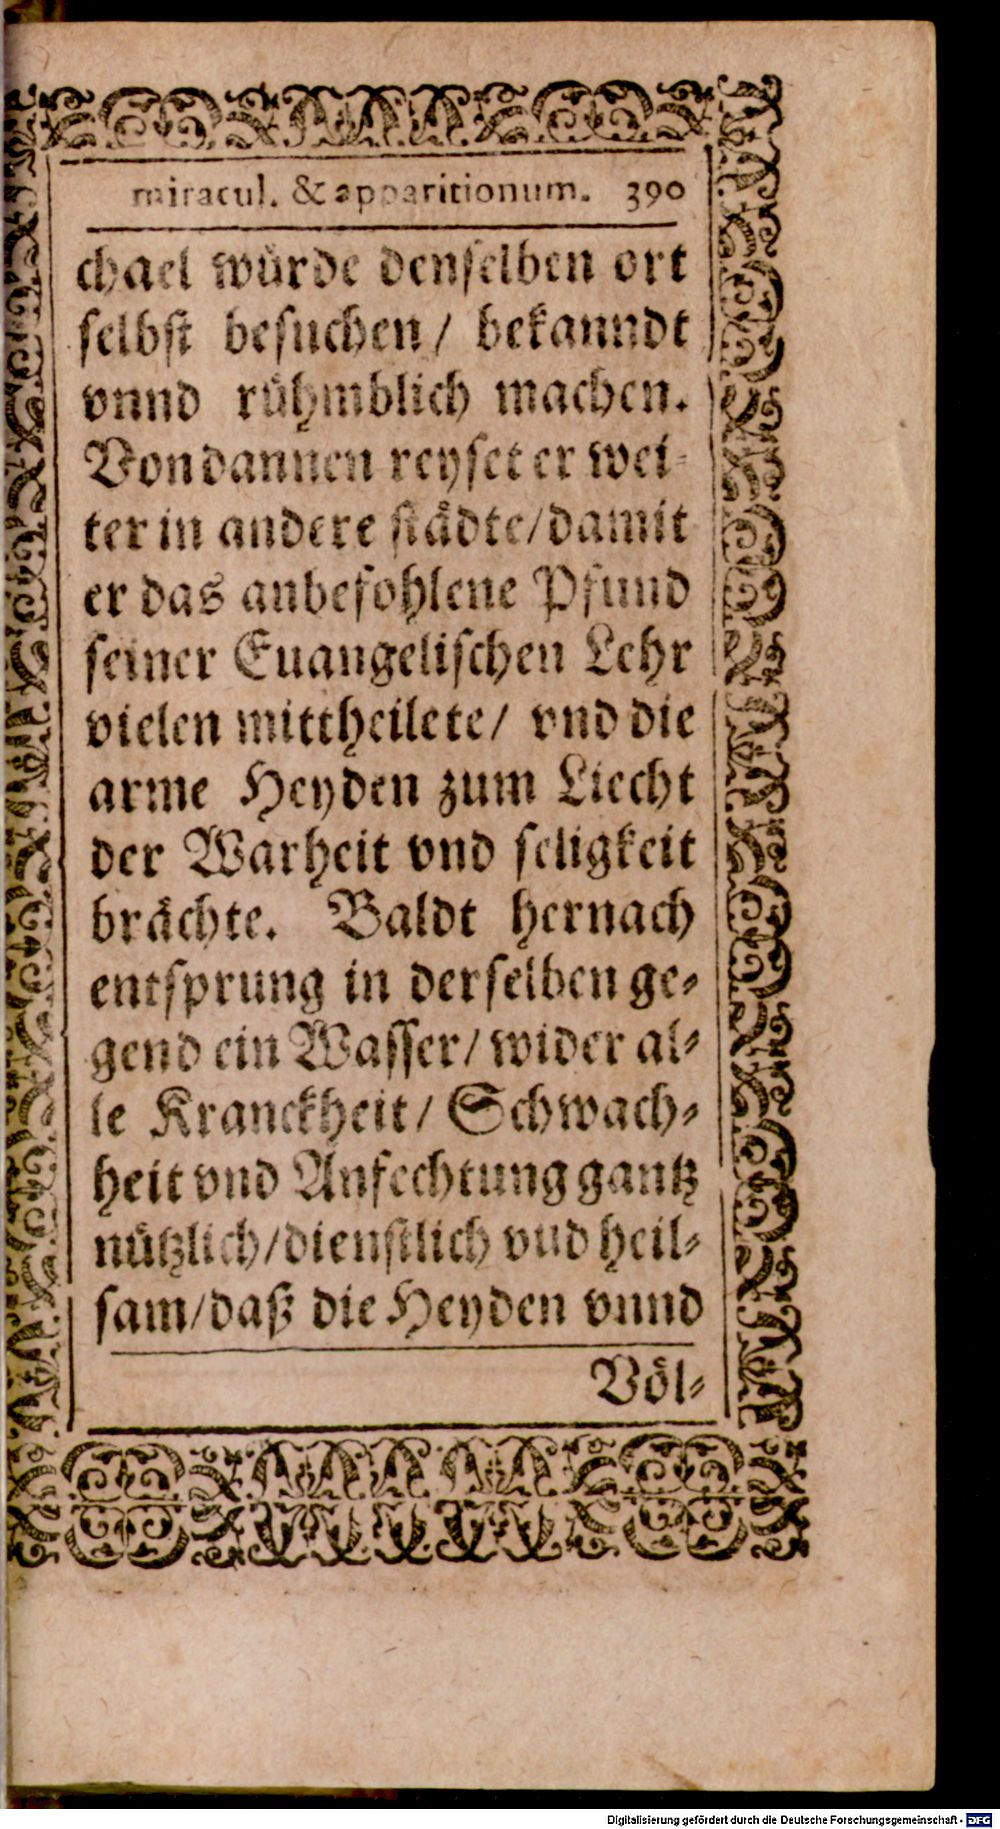 miracul. & apparitionum. 390
chael würde denselben ort
selbst besuchen/ bekanndt
vnnd rühmblich machen.
Von dannen reyset er wei-
ter in andere städte/damit
er das anbefohlene Pfund
seiner Euangelischen Lehr
vielen mittheilete/ vnd die
arme Heyden zum Liecht
der Warheit vnd seligkeit
brächte. Baldt hernach
entsprung in derselben ge-
gend ein Wasser/ wider al-
le Kranckheit/ Schwach-
heit vnd Anfechtung gantz
nützlich/dienstlich vnd heil-
sam/daß die Heyden vnnd
Völ-
Digitalisierung gefördert durch die Deutsche Forschungsgemeinschaft - DFG